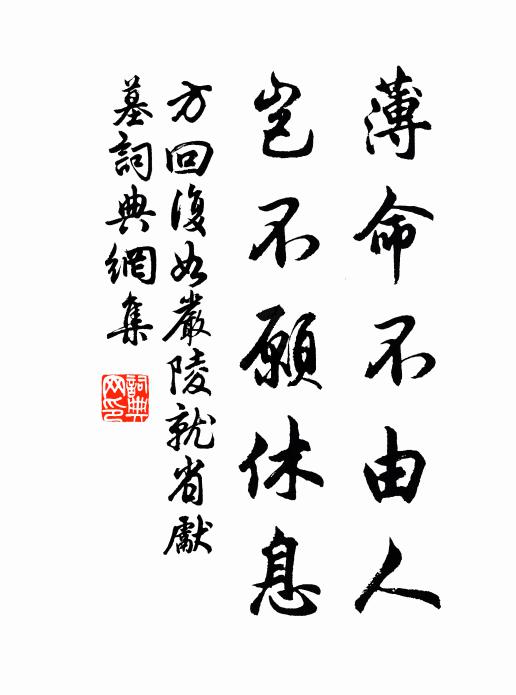 薄命不由人
豈不願休息
方回復如嚴陵就省獻
墓詞典網集
詞典
网印